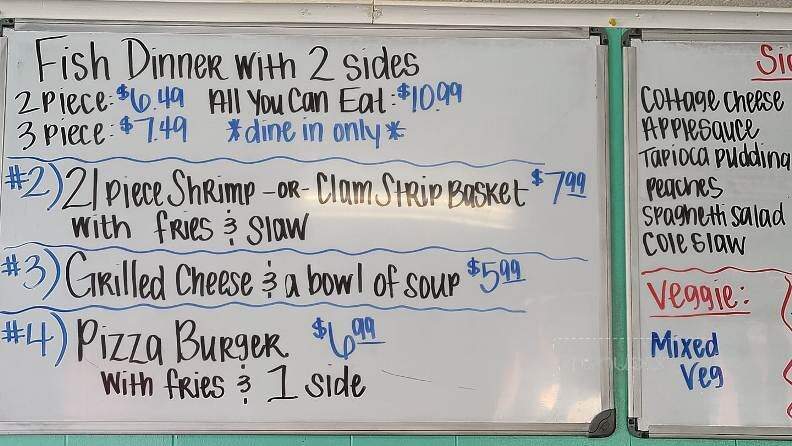 Fish Dinner with 2 sides
2 piece: $6.49 All You Can Eat: $10.99
3 piece: $7.49 *dine in only*
#2) 21 piece Shrimp -or- Clam Strip Basket $7.99
with fries & slaw
#3) Grilled Cheese & a bowl of soup $5.99
#4) Pizza Burger $6.99
with fries & 1 side
Cottage cheese
Applesauce
Tapioca pudding
peaches
spaghetti salad
cole slaw
Veggie:
Mixed
Veg